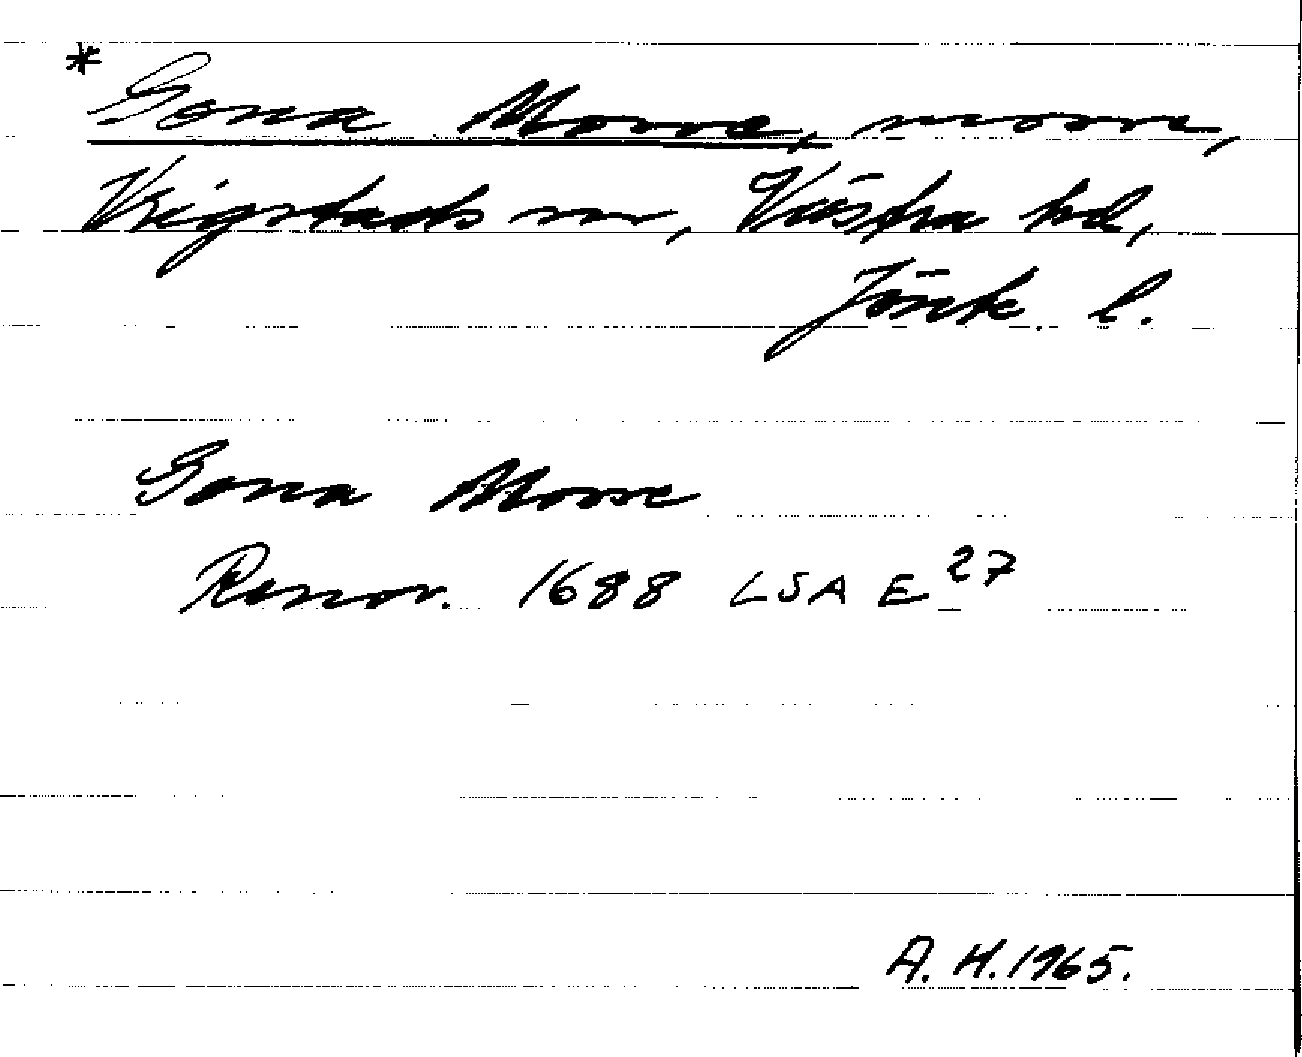 * Gona Mosse, mosse,
Vrigstads sn, Västra hd,
Jönk. l.
Gona Mosse
Renov. 1688 LSA E 27
A. H. 1965.